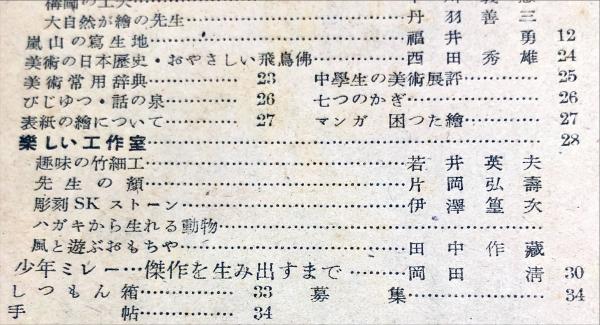 大自然が繪の先生……丹羽善三
嵐山の寫生地……福井勇 12
美術の日本歷史・おやさしい飛鳥佛……西田秀雄 24
美術常用辞典……23 中學生の美術展評……25
びじゆつ・話の泉……26 七つのかぎ……26
表紙の繪について……27 マンガ 困つた繪……27
楽しい工作室……28
趣味の竹細工……若井英夫
先生の顏……片岡弘壽
彫刻SKストーン……伊澤篁次
ハガキから生れる動物……
風と遊ぶおもちや……田中作藏
少年ミレー…傑作を生み出すまで……岡田淸 30
しつもん箱……33 募集……34
手帖……34